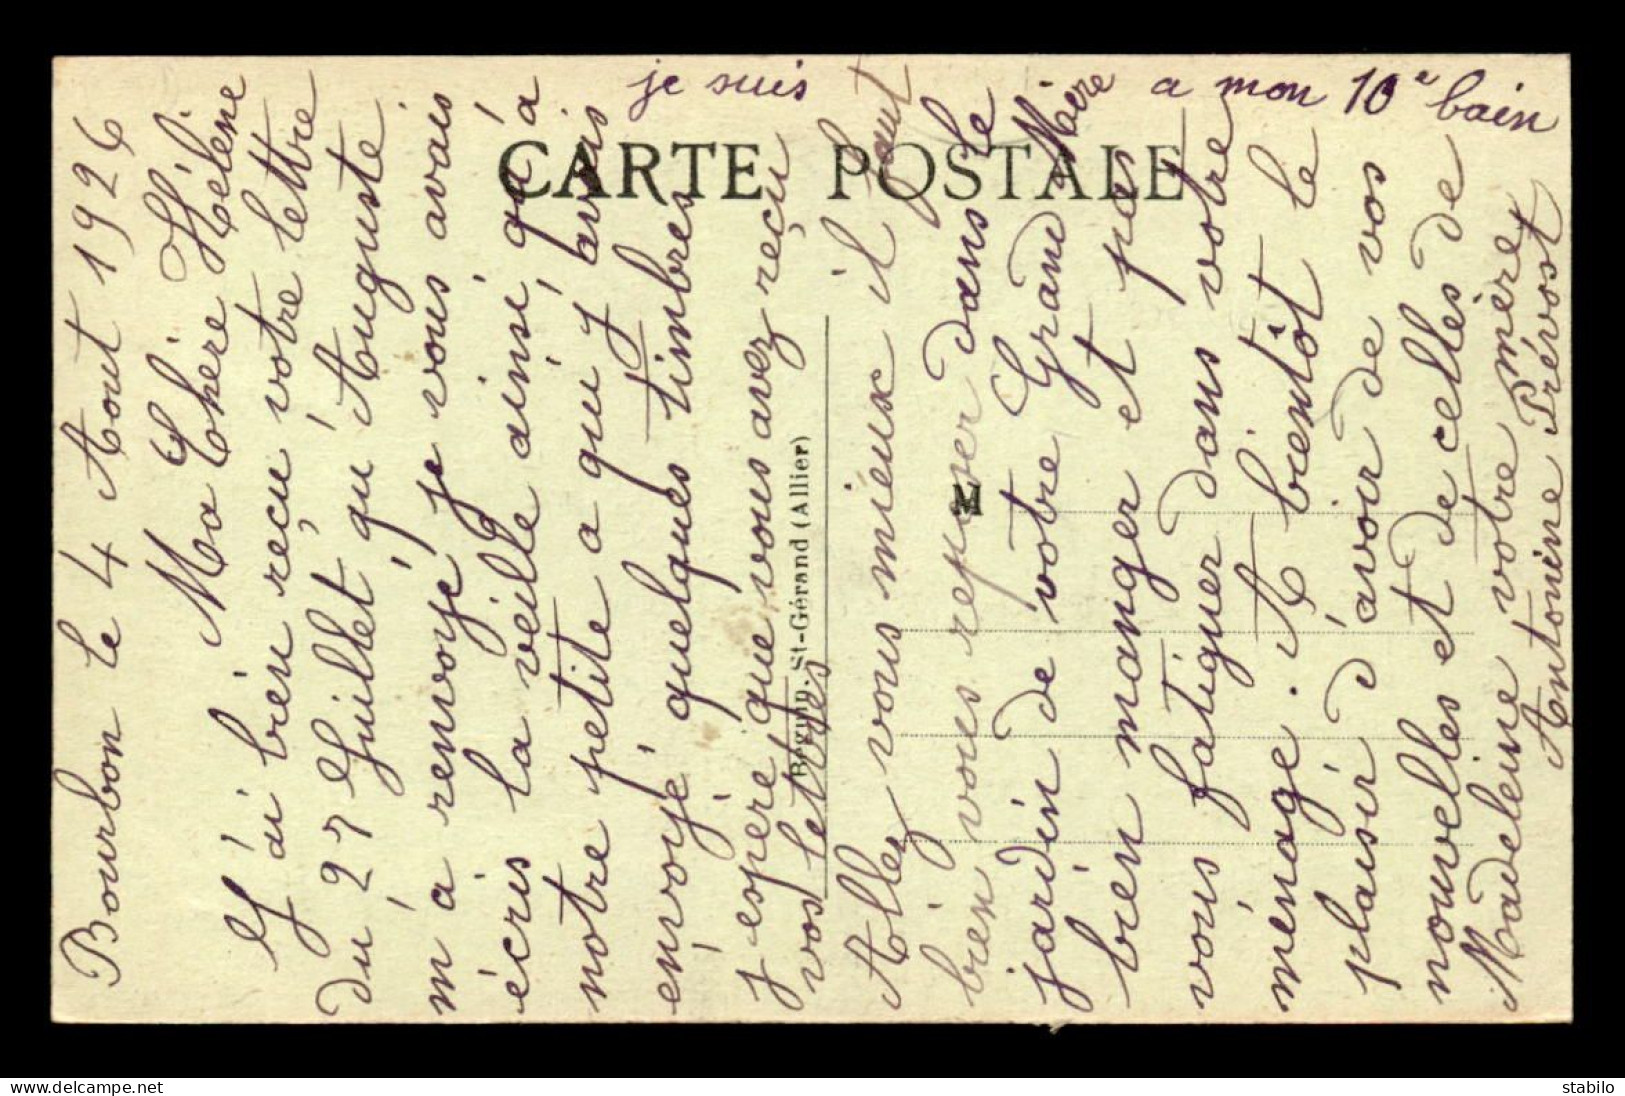 je suis a mon 10e bain
CARTE POSTALE
Bourbon le 4 Aout 1926
Ma Chère Hélène
J'ai bien reçu votre lettre
du 27 Juillet qu'Auguste
m'a renvoyé je vous avais
écris la veille ainsi qu'a
notre petite a qui j'avais
envoyé quelques timbres
j'espere que vous avez reçu
vos lettres
Allez vous mieux il faut
bien vous reposer dans le
jardin de votre Grand Mère
bien manger et pas
vous fatiguer dans votre
ménage. A bientôt le
plaisir d'avoir de vos
nouvelles et de celles de
Madeleine votre mère
Antoinine Prévost
Béguin, St-Gérand (Allier)
M
delcampe.net
stabilo